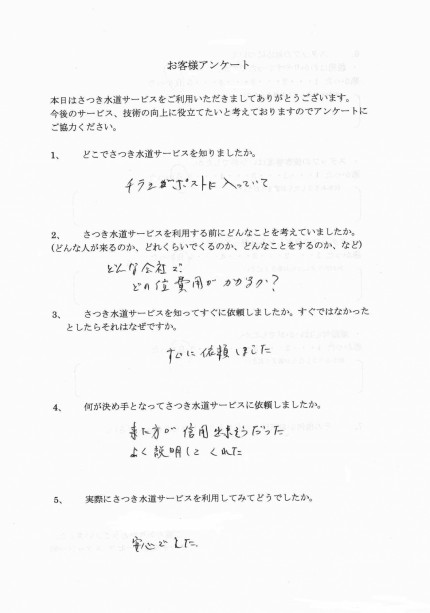 お客様アンケート
本日はさつき水道サービスをご利用いただきましてありがとうございます。
今後のサービス、技術の向上に役立てたいと考えておりますのでアンケートに
ご協力ください。
1、 どこでさつき水道サービスを知りましたか。
チラシがポストに入っていて
2、 さつき水道サービスを利用する前にどんなことを考えていましたか。
(どんな人が来るのか、どれくらいでくるのか、どんなことをするのか、など)
どんな会社で
どの位費用がかかるか?
3、 さつき水道サービスを知ってすぐに依頼しましたか。すぐではなかった
としたらそれはなぜですか。
すぐに依頼しました
4、 何が決め手となってさつき水道サービスに依頼しましたか。
来た方が信用出来そうだった
よく説明してくれた
5、 実際にさつき水道サービスを利用してみてどうでしたか。
安心でした。